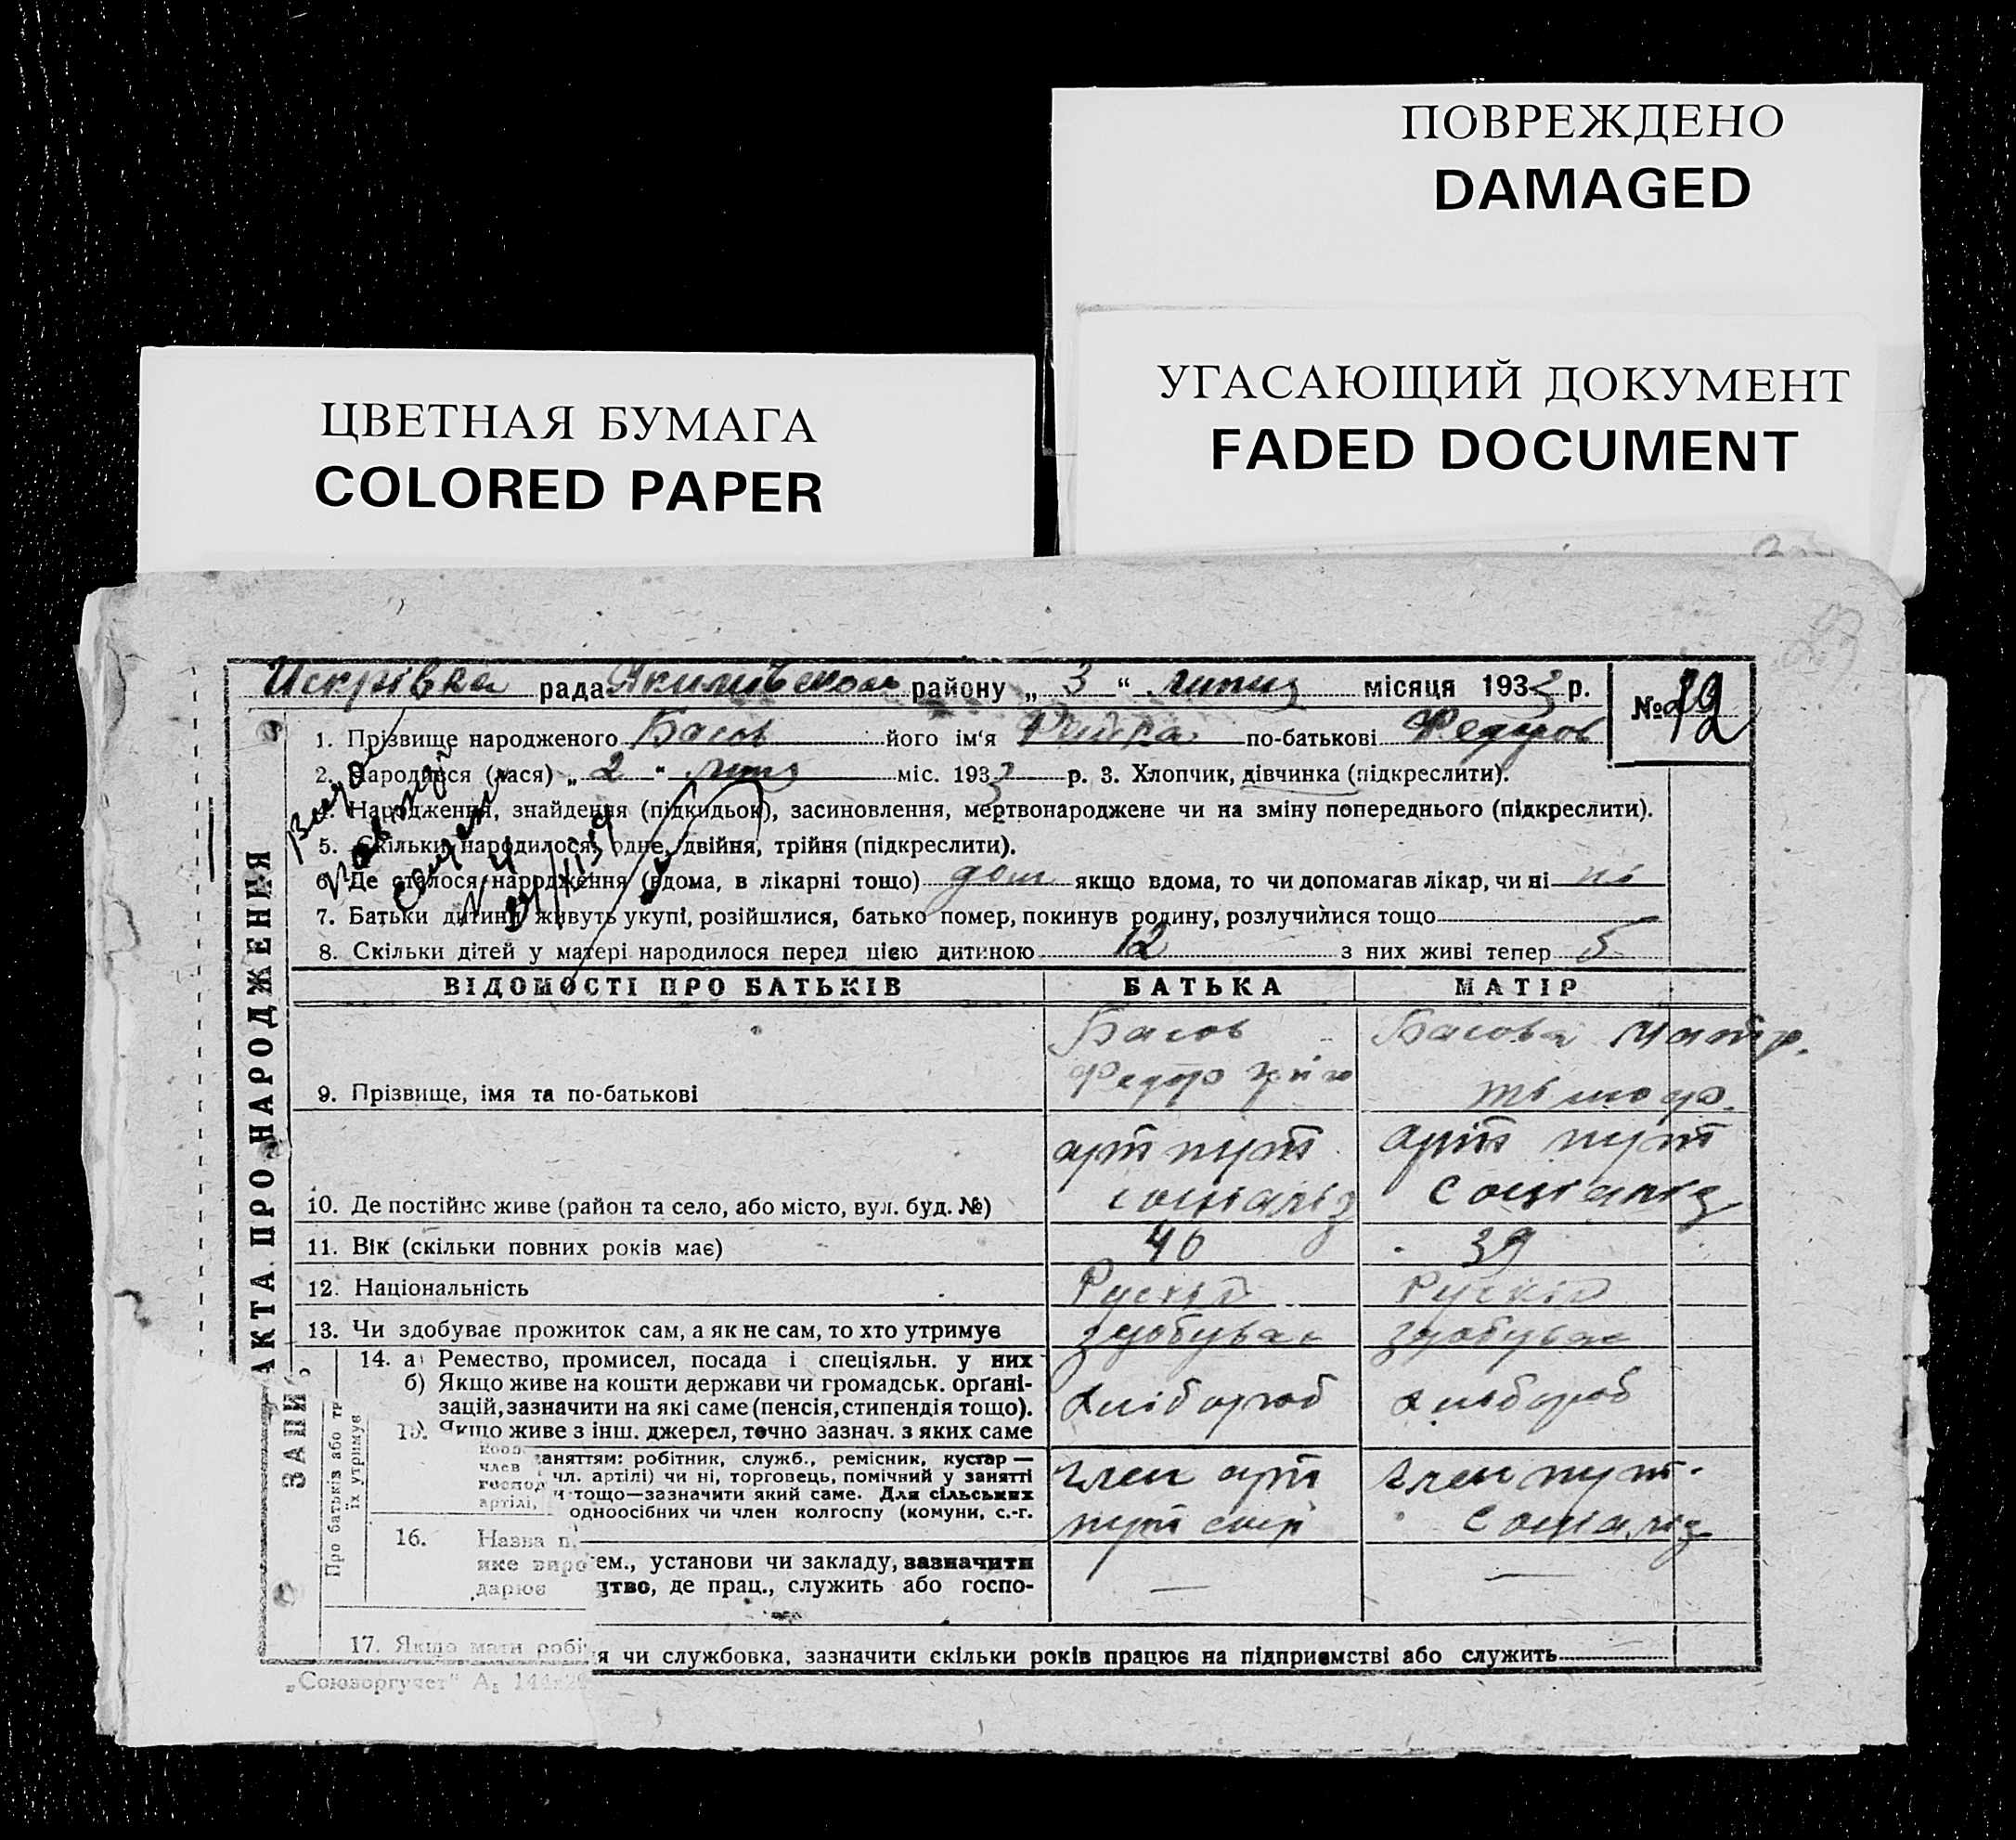 ПОВРЕЖДЕНО
DAMAGED
УГАСАЮЩИЙ ДОКУМЕНТ
FADED DOCUMENT
ЦВЕТНАЯ БУМАГА
COLORED PAPER
Искрівка рада району „ 3 “ липня місяця 1933 р.
№
1. Прізвище народженого Басов його ім'я по-батькові Федоров
2. Народився (лася) „ 2 “ міс. 193 р. 3. Хлопчик, дівчинка (підкреслити).
4. Народження, знайдення (підкидьок), засиновлення, мертвонароджене чи на зміну попереднього (підкреслити).
5. Скільки народилося: одне, двійня, трійня (підкреслити).
6. Де сталося народження (вдома, в лікарні тощо) дом якщо вдома, то чи допомагав лікар, чи ні ні
7. Батьки дитини живуть укупі, розійшлися, батько помер, покинув родину, розлучилися тощо
8. Скільки дітей у матері народилося перед цією дитиною 12 з них живі тепер 5
АКТА ПРО НАРОДЖЕННЯ
ВІДОМОСТІ ПРО БАТЬКІВ БАТЬКА МАТІР
Басов Басова
Федор
9. Прізвище, імя та по-батькові
арт пут арт пут
10. Де постійно живе (район та село, або місто, вул. буд. №) соціаліз соціаліз
11. Вік (скільки повних років має) 40 39
12. Національність Рускій Рускій
13. Чи здобуває прожиток сам, а як не сам, то хто утримує здобуває здобуває
ЗАПИ
Про батьків або
їх утримує
14. а) Ремество, промисел, посада і спеціяльн. у них
б) Якщо живе на кошти держави чи громадськ. орґані-
зацій, зазначити на які саме (пенсія, стипендія тощо). хлібороб хлібороб
Якщо живе з інш. джерел, точно зазнач. з яких саме
заняттям: робітник, служб., ремісник, кустар —
член
чл. артілі) чи ні, торговець, помічний у занятті член арт член пут.
господ
и тощо—зазначити який саме. Для сільських
артілі,
одноосібних чи член колгоспу (комуни, с.-г. пут соц соціаліз
16. Назва п
яке виро
ем., установи чи закладу, зазначити — —
дарює
цтво, де прац., служить або госпо-
17. Якщо мати робі
я чи службовка, зазначити скільки років працює на підприємстві або служить
„Союзоргучет“